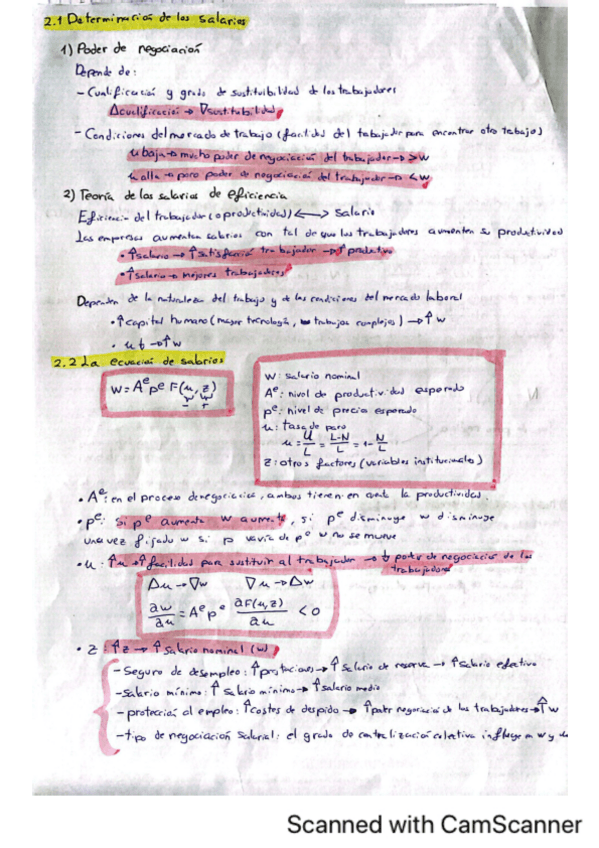 2.1 Determinación de los salarios
1) Poder de negociación
Depende de:
- Cualificación y grado de sustituibilidad de los trabajadores
Δcualificación → ∇sustituibilidad
- Condiciones del mercado de trabajo (facilidad del trabajador para encontrar otro trabajo)
u baja → mucho poder de negociación del trabajador → > w
u alta → poco poder de negociación del trabajador → < w
2) Teoría de los salarios de eficiencia
Eficiencia del trabajador (o productividad) ↔ salario
Las empresas aumentan salarios con tal de que los trabajadores aumenten su productividad
• ↑salario → ↑satisfacció trabajador → ↑ productivo
• ↑salario → mejores trabajadores
Dependen de la naturaleza del trabajo y de las condiciones del mercado laboral
• ↑capital humano (mayor tecnología, trabajos complejos) → ↑w
• u b → ↑w
2.2 La ecuación de salarios
W = Aᵉ pᵉ F(u, z)
- +
W: salario nominal
Aᵉ: nivel de productividad esperado
pᵉ: nivel de precio esperado
u: tasa de paro
u = U/L = L-N/L = 1- N/L
Z: otros factores (variables institucionales)
• Aᵉ: en el proceso de negociación, ambos tienen en cuenta la productividad.
• pᵉ: si pᵉ aumenta w aumenta, si pᵉ disminuye w disminuye
una vez fijado w si p varía de pᵉ w no se mueve
• u: ↑u → ↑facilidad para sustituir al trabajador → ↓ poder de negociación de los
trabajadores
Δu → ∇w ∇u → Δw
∂w/∂u = Aᵉ pᵉ ∂F(u,z)/∂u < 0
• Z: ↑z → ↑ salario nominal (w)
- Seguro de desempleo: ↑prestaciones → ↑ salario de reserva → ↑salario efectivo
- salario mínimo: ↑ salario mínimo → ↑salario medio
- protección al empleo: ↑costes de despido → ↑poder negociación de los trabajadores → ↑w
- tipo de negociación salarial: el grado de centralización colectiva influye en w y
Scanned with CamScanner